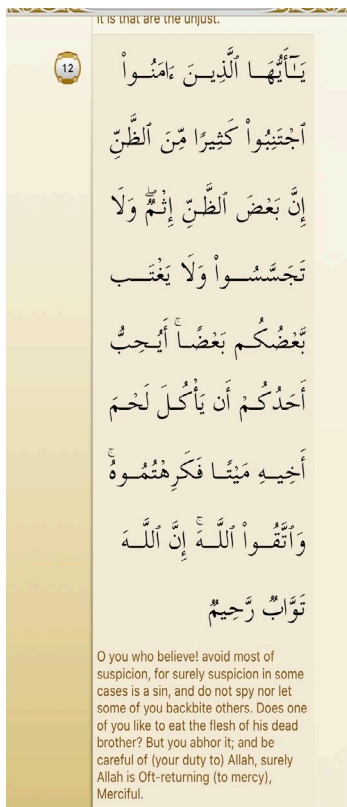 it is that are the unjust.
12
يَـٰٓأَيُّهَـا ٱلَّذِيـنَ ءَامَنُـوا۟
ٱجْتَنِبُوا۟ كَثِيرًا مِّنَ ٱلظَّنِّ
إِنَّ بَعْضَ ٱلظَّـنِّ إِثْمٌۭ ۖ وَلَا
تَجَسَّسُـــوا۟ وَلَا يَغْتَـــب
بَّعْضُكُـم بَعْضًـا ۚ أَيُـحِبُّ
أَحَدُكُـمْ أَن يَأْكُـلَ لَحْـمَ
أَخِيـهِ مَيْتًـا فَكَرِهْتُمُـوهُ ۚ
وَٱتَّقُــوا۟ ٱللَّــهَ ۚ إِنَّ ٱللَّــهَ
تَوَّابٌۭ رَّحِيمٌۭ
O you who believe! avoid most of
suspicion, for surely suspicion in some
cases is a sin, and do not spy nor let
some of you backbite others. Does one
of you like to eat the flesh of his dead
brother? But you abhor it; and be
careful of (your duty to) Allah, surely
Allah is Oft-returning (to mercy),
Merciful.